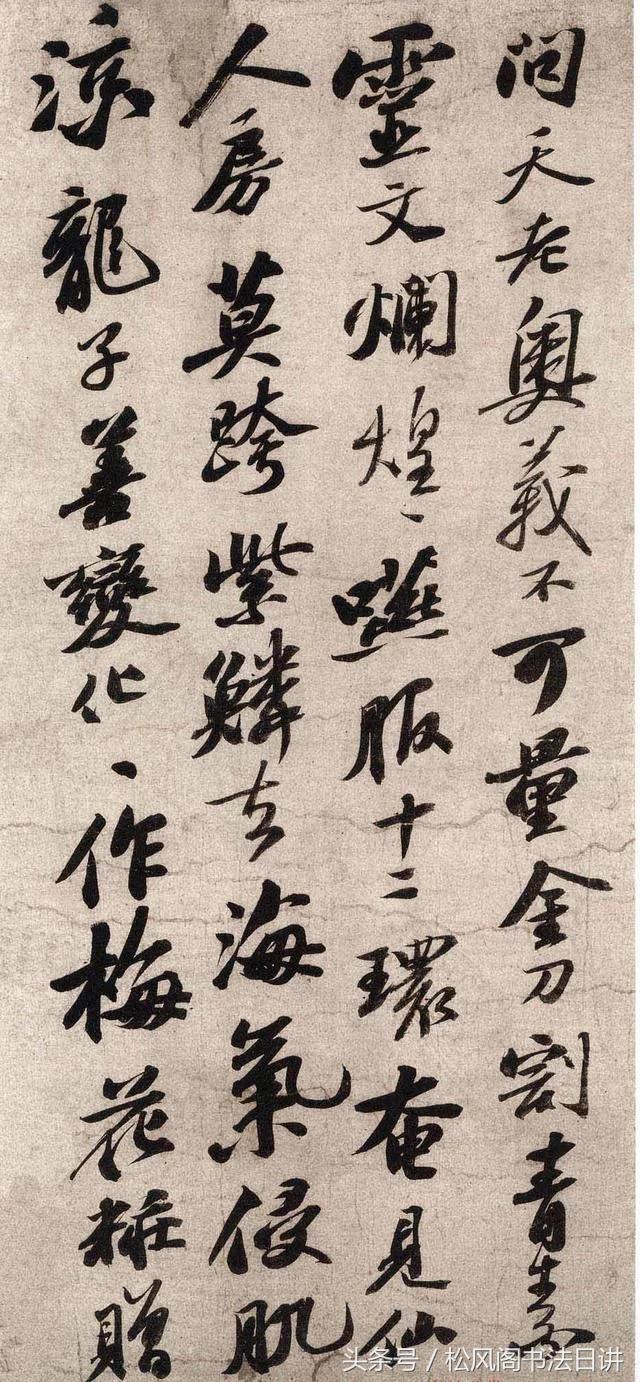 問天老奧義不可量金刀割青素
靈文爛煌〻嚥服十二環奄見仙
人房莫跨紫鱗去海氣侵肌
涼龍子善變化〻作梅花粧贈
头条号 / 松风阁书法日讲